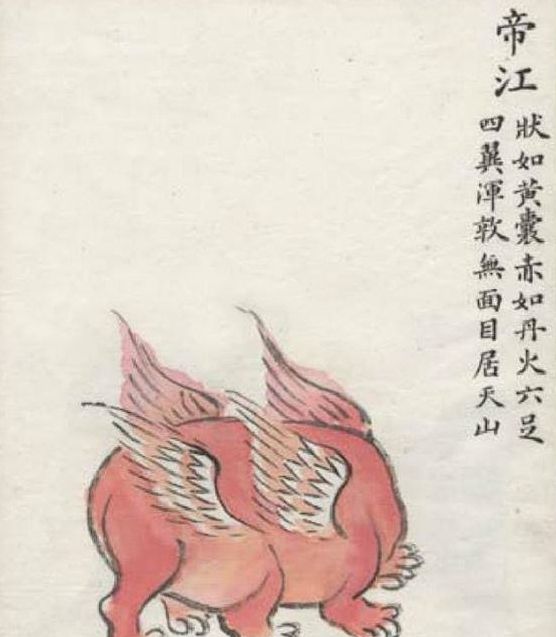 帝江
狀如黃囊赤如丹火六足
四翼渾敦無面目居天山